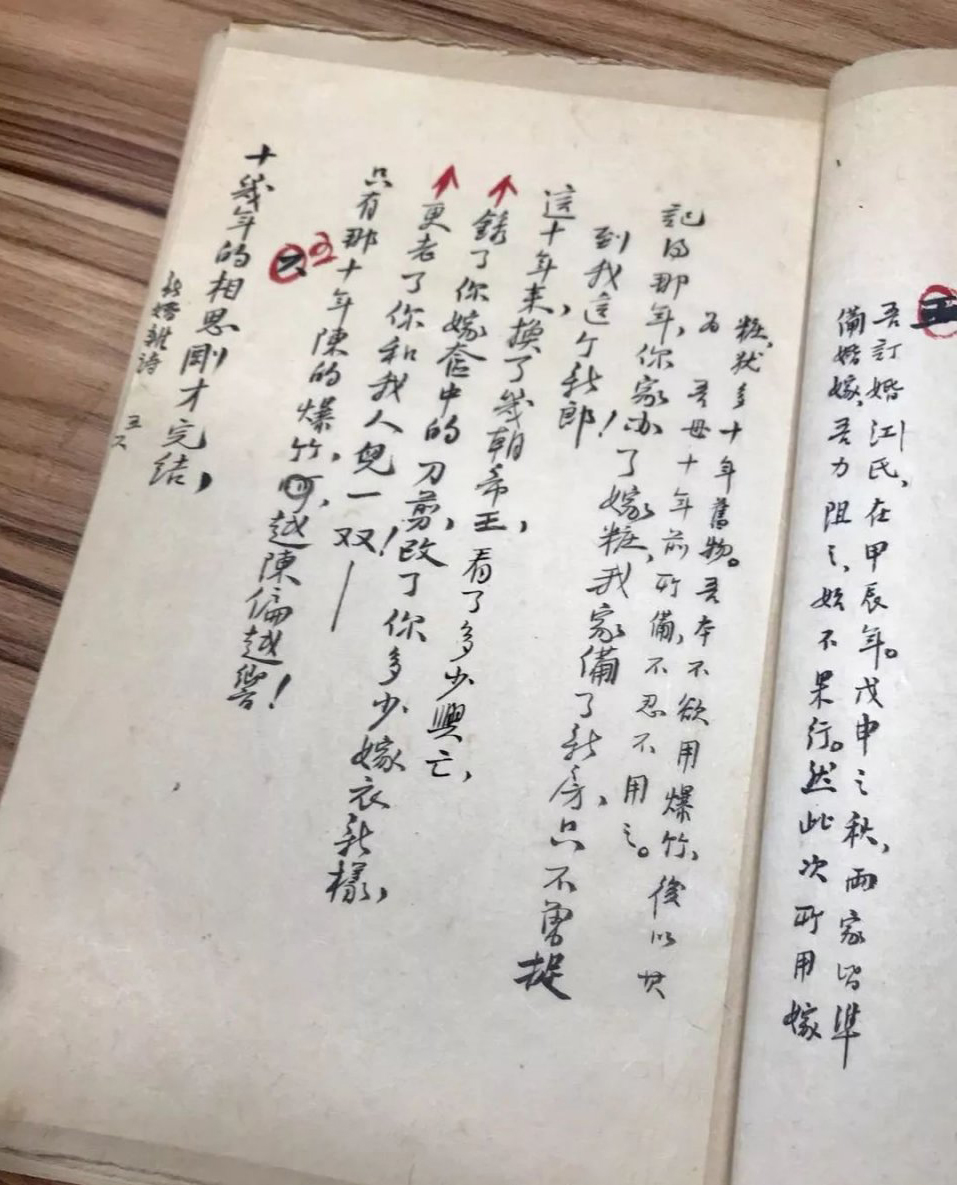 五
吾訂婚江氏，在甲辰年。戊申之秋，兩家皆準
備婚嫁，吾力阻之，始不果行。然此次所用嫁
粧，犹多十年舊物。吾本不欲用爆竹，後以其
為吾母十年前所備，不忍不用之。
記得那年，你家办了嫁粧，我家備了新房，只不曾捉
到我這个新郎！
這十年来，換了幾朝帝王，看了多少興亡，
銹了你嫁奩中的刀剪，改了你多少嫁衣新樣，
更老了你和我人兒一双！——
只有那十年陳的爆竹，越陳偏越響！
四
十幾年的相思剛才完結，
新婚雜詩
五六